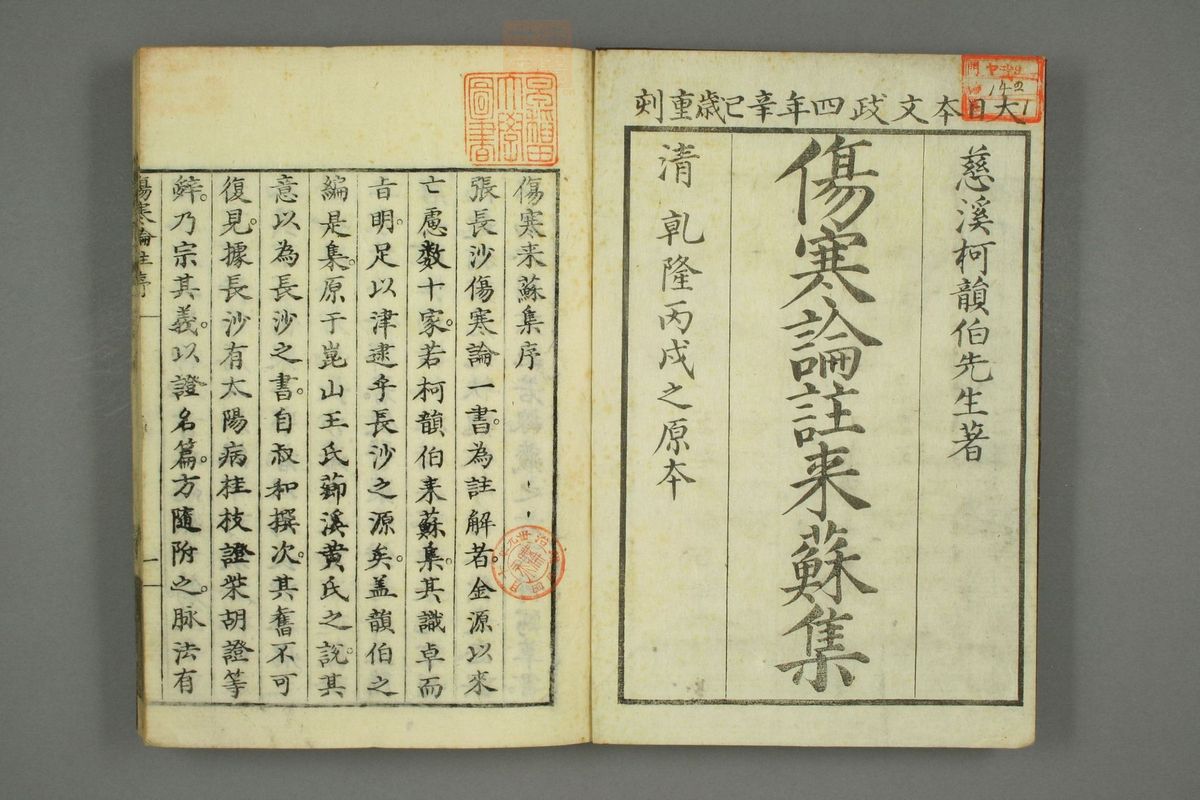 大日本文政四年辛巳歳重刻
慈溪柯韻伯先生著
傷寒論註来蘇集
清乾隆丙戌之原本
傷寒来蘇集序
張長沙傷寒論一書。為註解者。金源以来
亡慮数十家。若柯韻伯来蘇集。其識卓而
旨明。足以津逮乎長沙之源矣。盖韻伯之
編是集。原于崑山王氏蓈溪黄氏之說。其
意以為長沙之書。自叔和撰次。其舊不可
復見。據長沙有太陽病桂枝證柴胡證等
辭。乃宗其義。以證名篇。方隨附之。脉法有
傷寒論註序
一